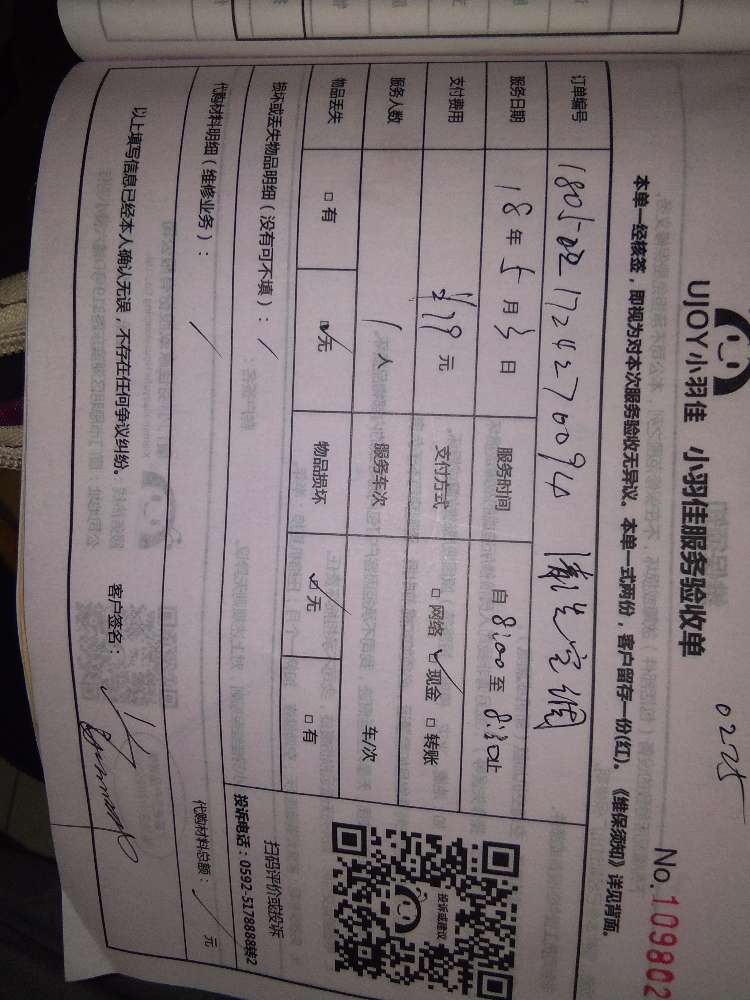 0225
UJOY小羽佳 小羽佳服务验收单
No.109802
本单一经核签，即视为对本次服务验收无异议。本单一式两份，客户留存一份(红)。《维保须知》详见背面。
订单编号 清洗空调
服务日期 18年5月3日 服务时间 自8:00至8:30止
支付费用 ¥79元 支付方式 □网络 ☑现金 □转账
服务人数 1人 服务车次 车/次
物品丢失 □有 ☑无 物品损坏 ☑无 □有
损坏或丢失物品明细（没有可不填）： /
投诉或建议
扫码评价或投诉
投诉电话：0592-5178888转2
代购材料明细（维修业务）： / 代购材料总额： / 元
以上填写信息已经本人确认无误，不存在任何争议纠纷。 客户签名：